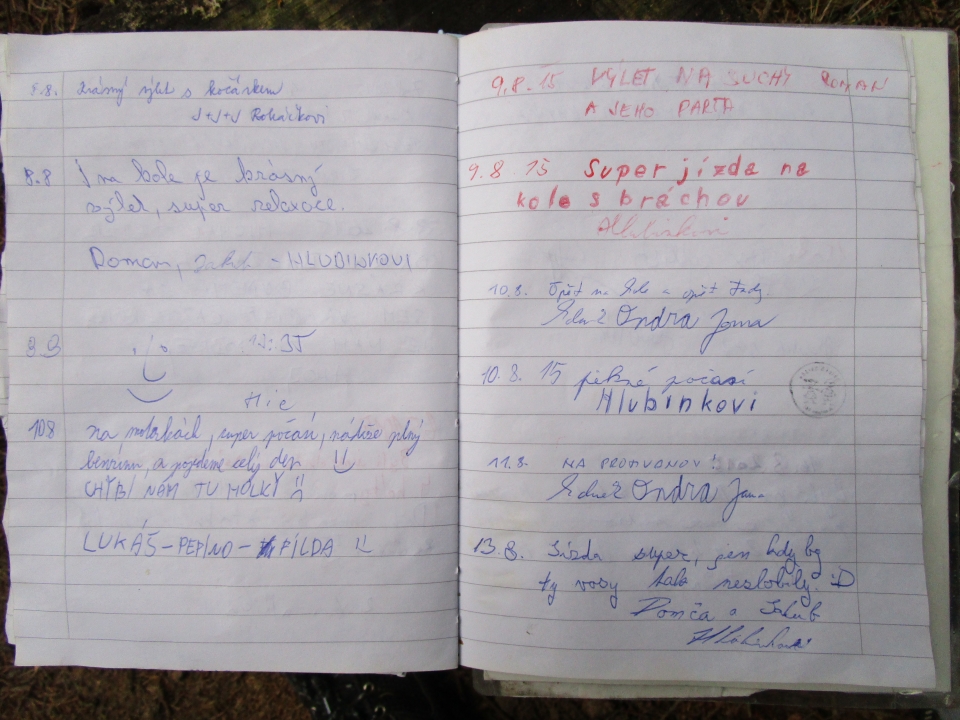 8.8. Krásný výlet s kočárkem
J+J+J Roháčkovi
8.8 I na kole je krásný
výlet, super relaxace.
Roman, Jakub - HLUBINKOVI
8.9
108 na motorkách, super počasí, nádrže plný
benzínu, a pojedeme celej den
CHYBÍ NÁM TU HOLKY
LUKÁŠ-PEPÍNO-PÍLDA
9.8.15 VÝLET NA SUCHÝ ROMAN
A JEHO PARTA
9.8 15 Super jízda na
kole s bráchou
10.8. Opět na kole a opět tady.
Ondra Jana
10.8. 15 pěkné počasí
Hlubinkovi
11.8. NA PROTIVANOV!
Ondra Jana
13.8. Jízda super, jen kdyby
ty vosy tak nezlobily. :D
Domča a Jakub